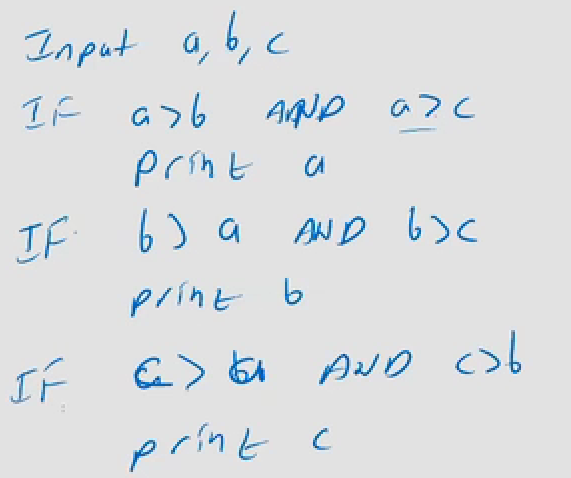 Input a, b, c
IF a>b AND a>c
print a
IF b> a AND b>c
print b
IF c> a AND c>b
print c